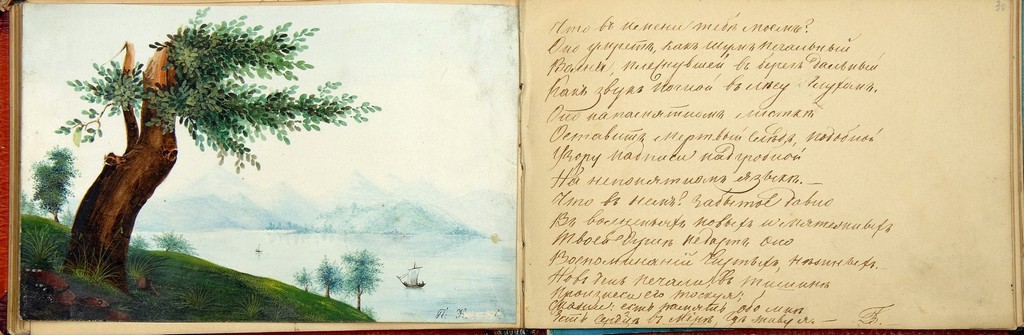 30
Что въ имени тебѣ моемъ?
Оно умретъ, какъ шумъ печальный
Волны, плеснувшей въ берегъ дальный
Какъ звукъ ночной въ лѣсу глухомъ.
Оно на памятномъ листкѣ
Оставитъ мертвый слѣдъ, подобной
Узору надписи надгробной
На непонятномъ языкѣ. —
Что въ немъ? Забытое давно
Въ волненьяхъ новыхъ и мятежныхъ
Твоей душѣ недастъ оно
Воспоминаній чистыхъ, нѣжныхъ. —
Но въ день печали, въ тишинѣ
Произнеси его тоскуя;
Скажи: есть память обо мнѣ
Есть сердце въ мірѣ гдѣ живу я. —
П.